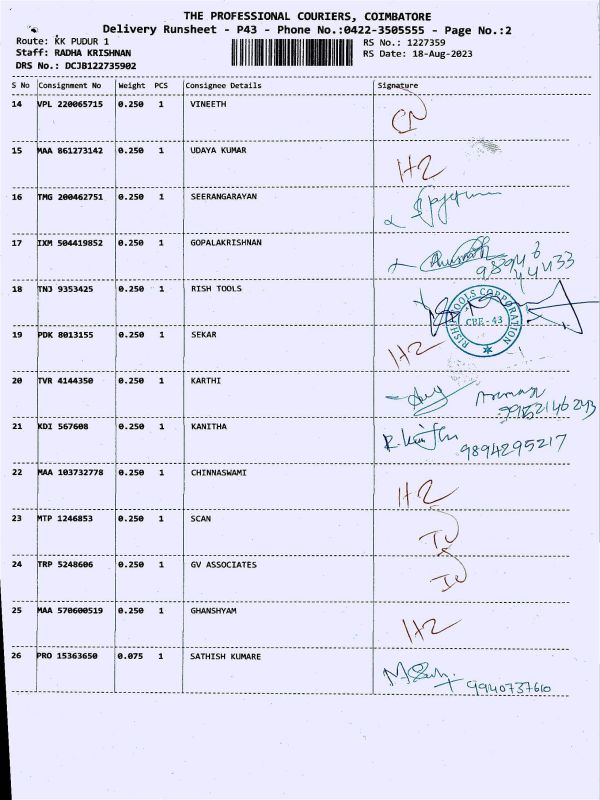 THE PROFESSIONAL COURIERS, COIMBATORE
Delivery Runsheet - P43 - Phone No.:0422-3505555 - Page No.:2
Route: KK PUDUR 1
RS No.: 1227359
Staff: RADHA KRISHNAN
RS Date: 18-Aug-2023
DRS No.: DCJB122735902
S No Consignment No Weight PCS Consignee Details Signature
14 VPL 220065715 0.250 1 VINEETH
15 MAA 861273142 0.250 1 UDAYA KUMAR H2
16 TMG 200462751 0.250 1 SEERANGARAYAN
17 IXM 504419852 0.250 1 GOPALAKRISHNAN
18 TNJ 9353425 0.250 1 RISH TOOLS
RISH TOOLS CORPORATION
CBE-43
19 PDK 8013155 0.250 1 SEKAR H2
20 TVR 4144350 0.250 1 KARTHI
21 KDI 567608 0.250 1 KANITHA 9894295217
22 MAA 103732778 0.250 1 CHINNASWAMI H2
23 MTP 1246853 0.250 1 SCAN
24 TRP 5248606 0.250 1 GV ASSOCIATES
25 MAA 570600519 0.250 1 GHANSHYAM H2
26 PRO 15363650 0.075 1 SATHISH KUMARE 9940737610